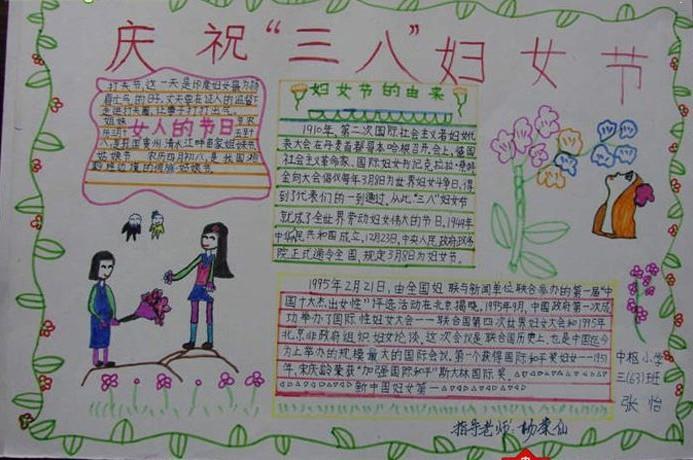 庆祝“三八”妇女节
打夫节,这一天是印度妇女最为扬
眉吐气的日子,丈夫要在证人的监督下
走进打夫屋,让妻子打打出气。
女人的节日
姑娘节 农历四月初八,是我国
妇女节的由来
1910年,第二次国际社会主义者妇女代
表大会在丹麦首都哥本哈根召开会上,德国
社会主义革命家、国际妇女书记克拉拉·
会向大会倡仪每年3月8日为世界妇女斗争日,得
到了代表们的一到通过,从此“三八”妇女节
就成了全世界劳动妇女伟大的节日,1949年
中华民共和国成立,12月23日,中央人民政府政务
院上式通令全国,规定3月8日为妇女节。
1995年2月21日,由全国妇联与新闻单位联合举办的第一届“中
国十大杰出女性”评选活动在北京揭晓,1995年9月,中国政府第一次成
功举办了国际性妇女大会——联合国第四次世界妇女大会和1995年
北京非政府组织妇女论谈,这次会议是联合国历史上,也是中国迄今
为止举办的规模最大的国际会议,第一个获得国际和平奖妇女——1951
年,宋庆龄荣获“加强国际和平”斯大林国际奖。
新中国妇女第一
中枢小学
三(63)班
张怡
指导老师:杨仙